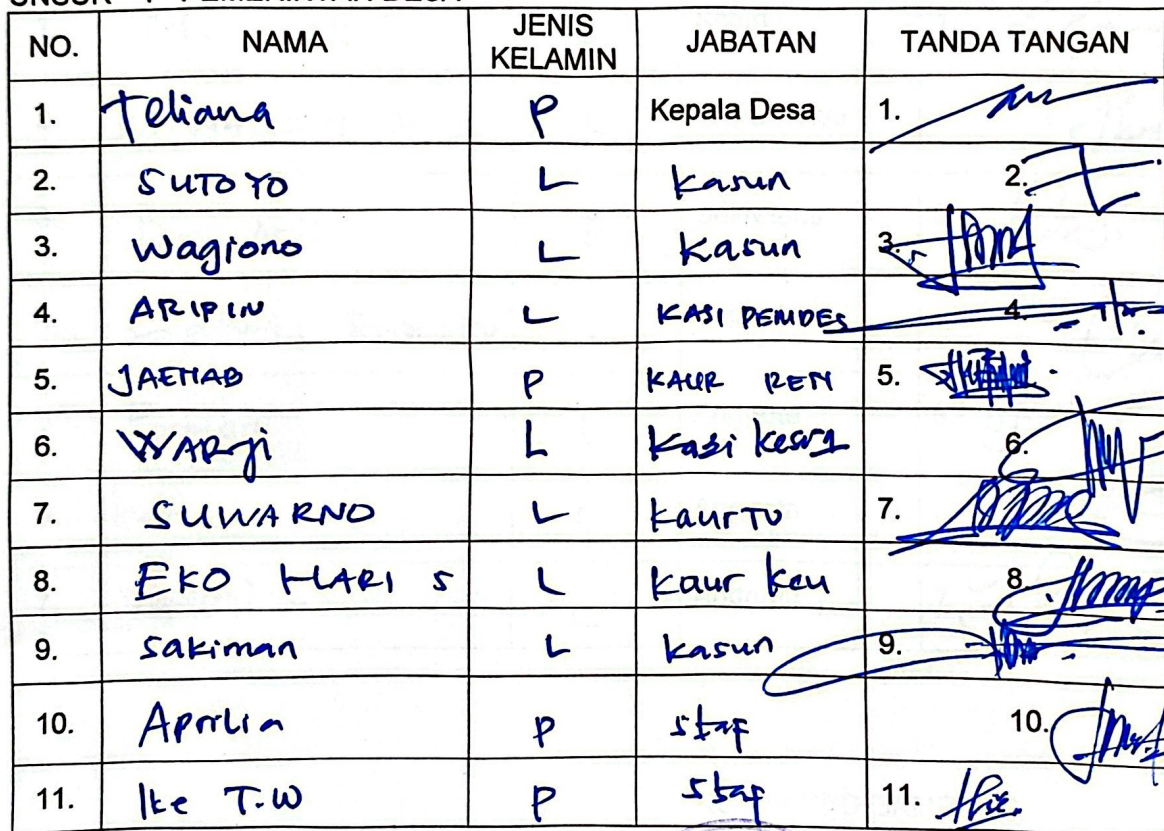 UNSUR : PEMERINTAH DESA
NO. NAMA JENIS KELAMIN JABATAN TANDA TANGAN
1. Teliana P Kepala Desa 1.
2. SUTOYO L Kasun 2.
3. Wagiono L Kasun 3.
4. ARIPIN L KASI PEMDES 4.
5. JAENAB P KAUR REN 5.
6. WARJi L Kasi Kesra 6.
7. SUWARNO L KaurTU 7.
8. EKO HARI S L Kaur Keu 8
9. Sakiman L Kasun 9.
10. Aprilia P staf 10.
11. Ike T.W P staf 11.